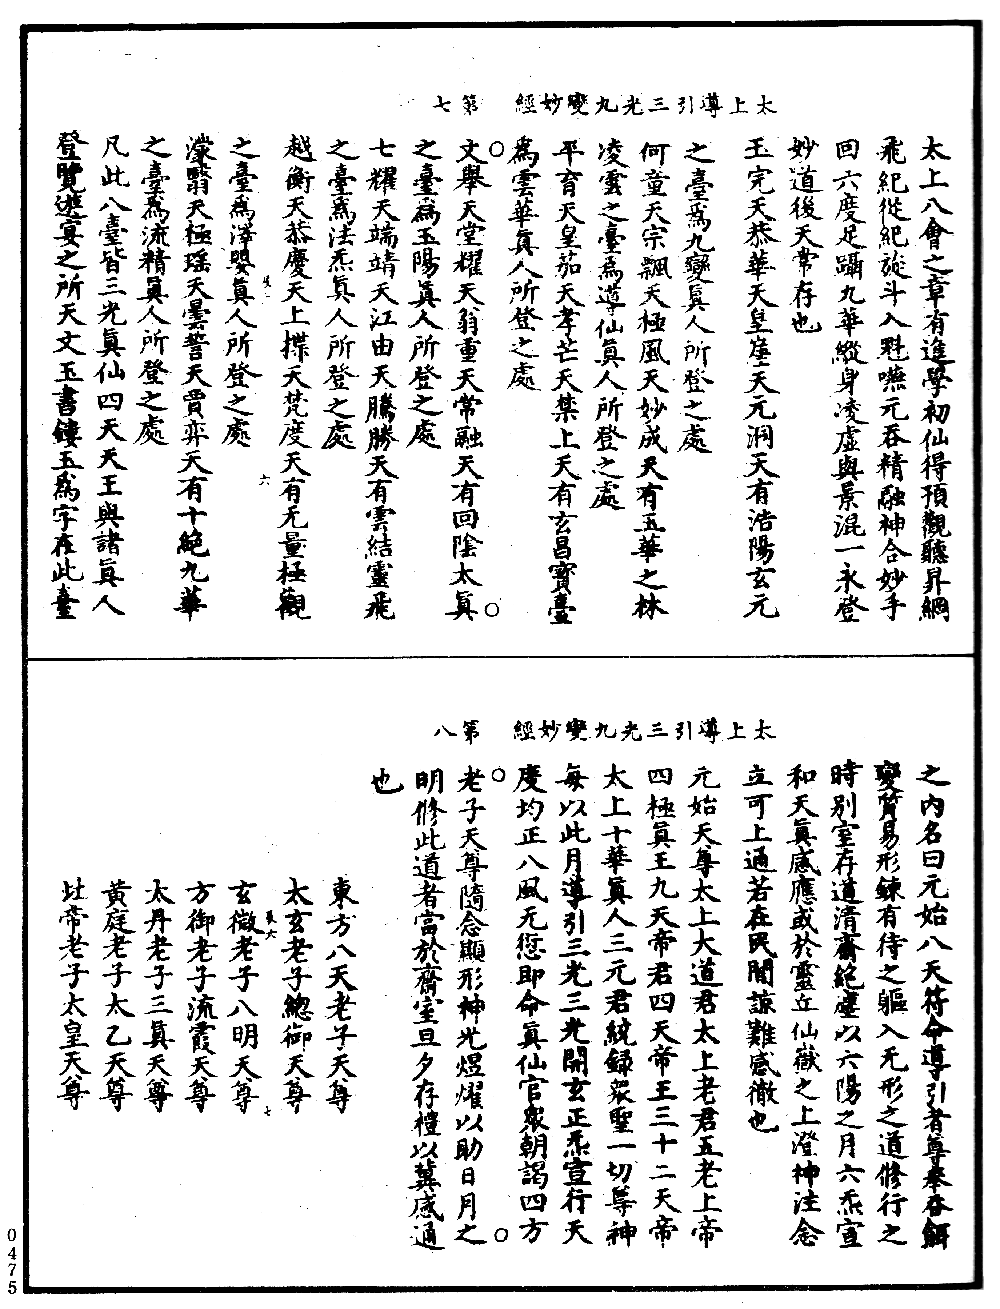 太上導引三光九變妙經　第七
太上八會之章有進學初仙得預觀聽昇綱
飛紀從紀旋斗入魁嚥元吞精融神合妙手
回六度足躡九華縱身凌虛與景混一永登
妙道後天常存也
玉完天恭華天皇崖天元洞天有浩陽玄元
之臺爲九變真人所登之處
何童天宗飄天極風天妙成天有五華之林
凌雲之臺爲導仙真人所登之處
平育天皇茄天孝芒天某上天有玄昌寶臺
爲雲華真人所登之處
文舉天堂耀天翁重天常融天有回陰太真
之臺爲玉陽真人所登之處
七耀天端靖天江由天騰勝天有雲結靈飛
之臺爲法炁真人所登之處
越衡天恭慶天上揲天梵度天有无量極觀
之臺爲澤嬰真人所登之處
濛翳天極瑶天曇誓天賈弈天有十絕九華
之臺爲流精真人所登之處
凡此八臺皆三光真仙四天天王與諸真人
登覽遊宴之所天文玉書鏤玉爲字在此臺
六
太上導引三光九變妙經　第八
之內名曰元始八天符命導引者尊奉吞餌
變質易形鍊有待之軀入无形之道修行之
時別室存道清齋絕塵以六陽之月六炁宣
和天真感應或於靈丘仙嶽之上澄神注念
立可上通若在民間諒難感徹也
元始天尊太上大道君太上老君五老上帝
四極真王九天帝君四天帝王三十二天帝
太上十華真人三元君統錄衆聖一切尊神
每以此月導引三光三光開玄正炁宣行天
度均正八風无愆即命真仙官衆朝謁四方
老子天尊隨念顯形神光煜燿以助日月之
明修此道者當於齋室旦夕存禮以冀感通
也
東方八天老子天尊
太玄老子總御天尊
玄徹老子八明天尊
方御老子流霞天尊
太丹老子三真天尊
黃庭老子太乙天尊
北帝老子太皇天尊
七
0475